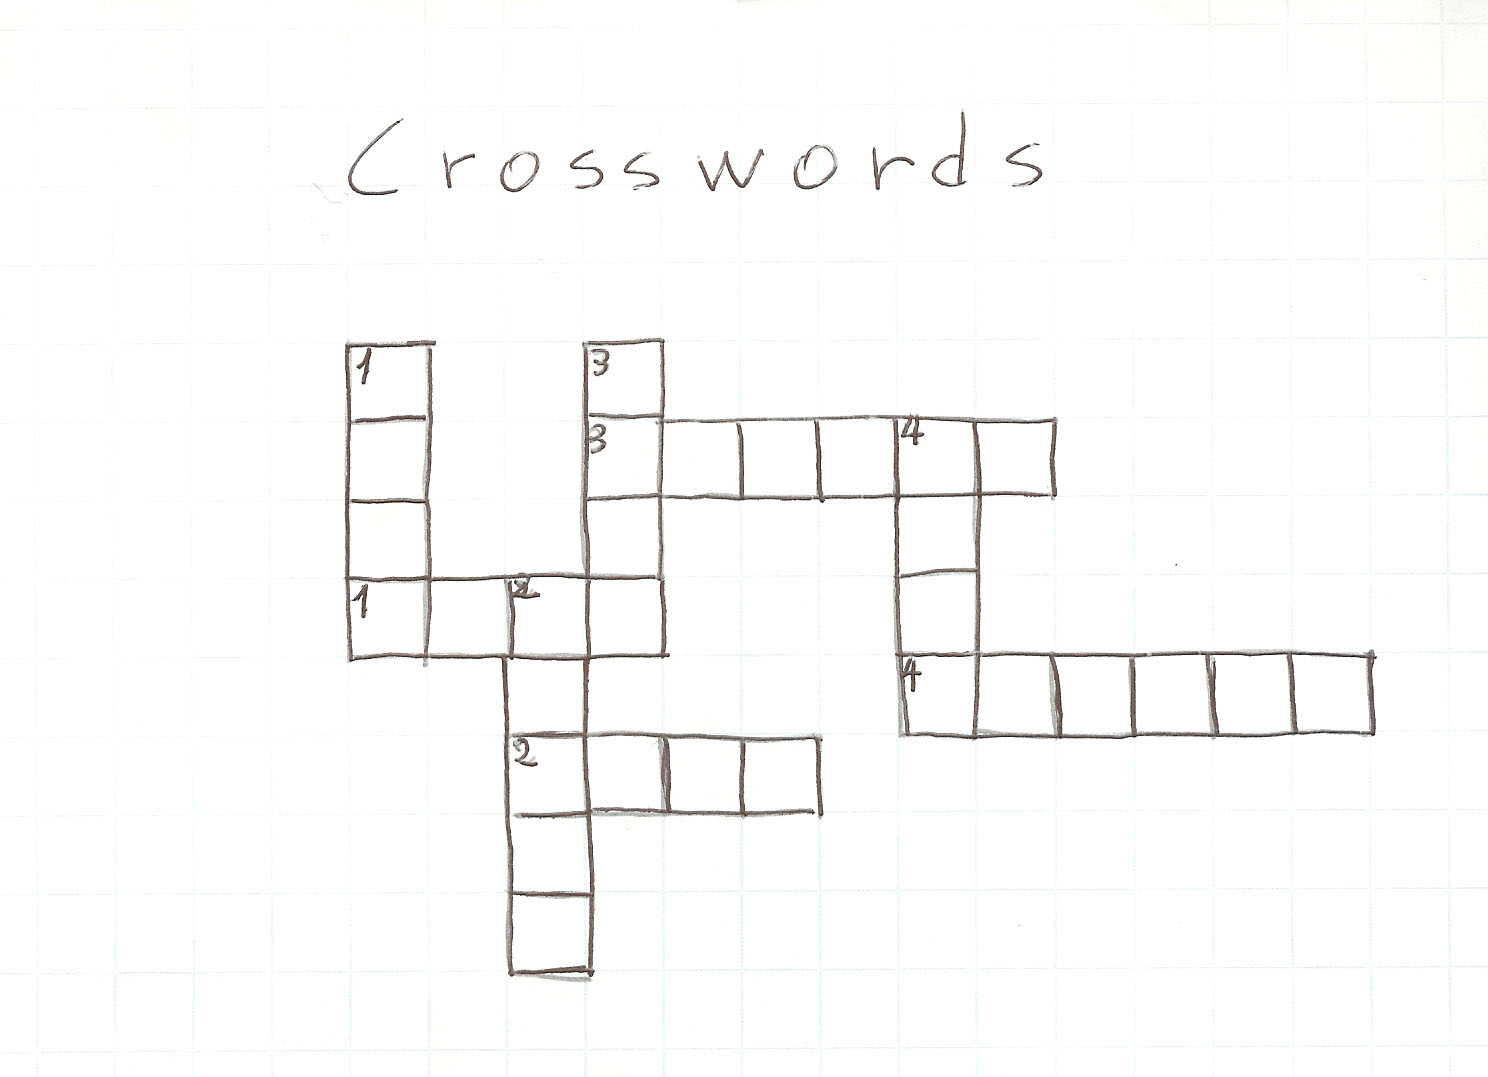 Crosswords
1 3
3 4
1 2
4
2